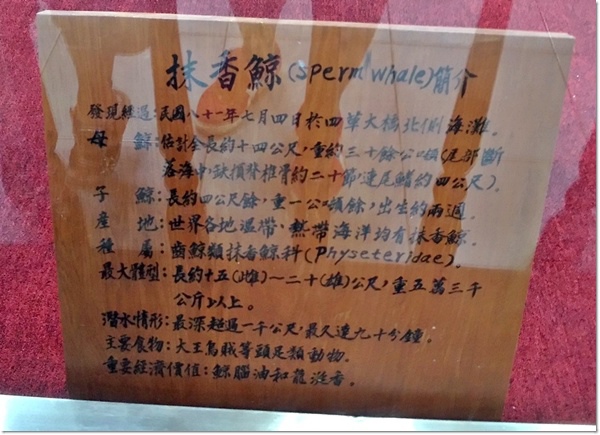 抹香鯨(sperm whale)簡介
發現經過:民國八十一年七月四日於四草大橋北側海灘。
母 鯨:估計全長約十四公尺,重約三十餘公噸(尾部斷
落海中,缺損脊椎骨約二十節,連尾鰭約四公尺)。
子 鯨:長約四公尺餘,重一公噸餘,出生約兩週。
產 地:世界各地溫帶、熱帶海洋均有抹香鯨。
種 屬:齒鯨類抹香鯨科(Physeteridae)。
最大體型:長約十五(雌)~二十(雄)公尺,重五萬三千
公斤以上。
潛水情形:最深超過一千公尺,最久達九十分鐘。
主要食物:大王烏賊等頭足類動物。
重要經濟價值:鯨腦油和龍涎香。